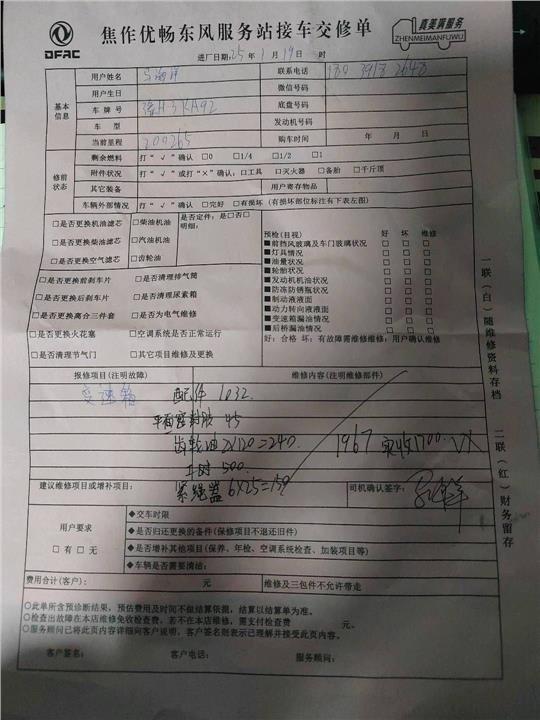 DFAC
焦作优畅东风服务站接车交修单
真美满服务
ZHENMEIMANFUWU
进厂日期:25年1月19日 时
基本信息
用户姓名 联系电话
用户生日 微信号码
车牌号 豫H3KA92 底盘号码
车型 发动机号码
当前里程 200265 购车时间 年 月 日
修前状态
剩余燃料 打“√”确认 □0 □1/4 □1/2 □1
附件状况 打“√”或打“×”确认:□工具 □灭火器 □备胎 □千斤顶
其它装备 用户寄存物品
车辆外部情况 打“√”确认 □完好 □有损坏(有损坏部位标注有下表左图)
□是否更换机油滤芯 □柴油机油 是否定件:是□否□
明细:
□是否更换柴油滤芯 □汽油机油
□是否更换空气滤芯 □齿轮油
□是否更换前刹车片 □是否清理排气筒
□是否更换后刹车片 □是否清理尿素箱
□是否更换离合三件套 □是否为电气维修
□是否更换火花塞 □空调系统是否正常运行
□是否清理节气门 □其它项目维修及更换
预检(目视) 好 坏 维修
■前挡风玻璃及车门玻璃状况 □ □ □
■灯具情况 □ □ □
■油量状况 □ □ □
■轮胎状况 □ □ □
■发动机机油状况 □ □ □
■防冻防锈瓶状况 □ □ □
■制动液液面 □ □ □
■动力转向液液面 □ □ □
■变速箱漏油情况 □ □ □
■后桥漏油情况 □ □ □
好:合格 坏:有故障需维修维修:用户确认维修
报修项目(注明故障) 维修内容(注明维修部件)
变速箱 配件 1032.
平面密封胶 45
齿轮油 2X120=240. 1967 实收1700.
工时 500.
紧绳器 6X25=150
建议维修项目或增补项目: 司机确认签字:
用户要求
□有□无
◆交车时限
◆是否归还更换的备件(保修项目不退还旧件)
◆是否增补其他项目(保养、年检、空调系统检查、加装项目等)
◆车辆是否需要清油:
费用合计(客户): 元 维修及三包件不允许带走
○此单所含预诊断结果,预估费用及时间不做结算依据,结算以结算单为准。
○检查出故障在本店维修免收检查费,若不在本店维修,需支付检查费 元。
○服务顾问已将此页内容详细向客户说明,客户签名则表示已理解并接受此页内容。
客户签名: 客户电话: 服务顾问:
一联(白)随维修资料存档
二联(红)财务留存